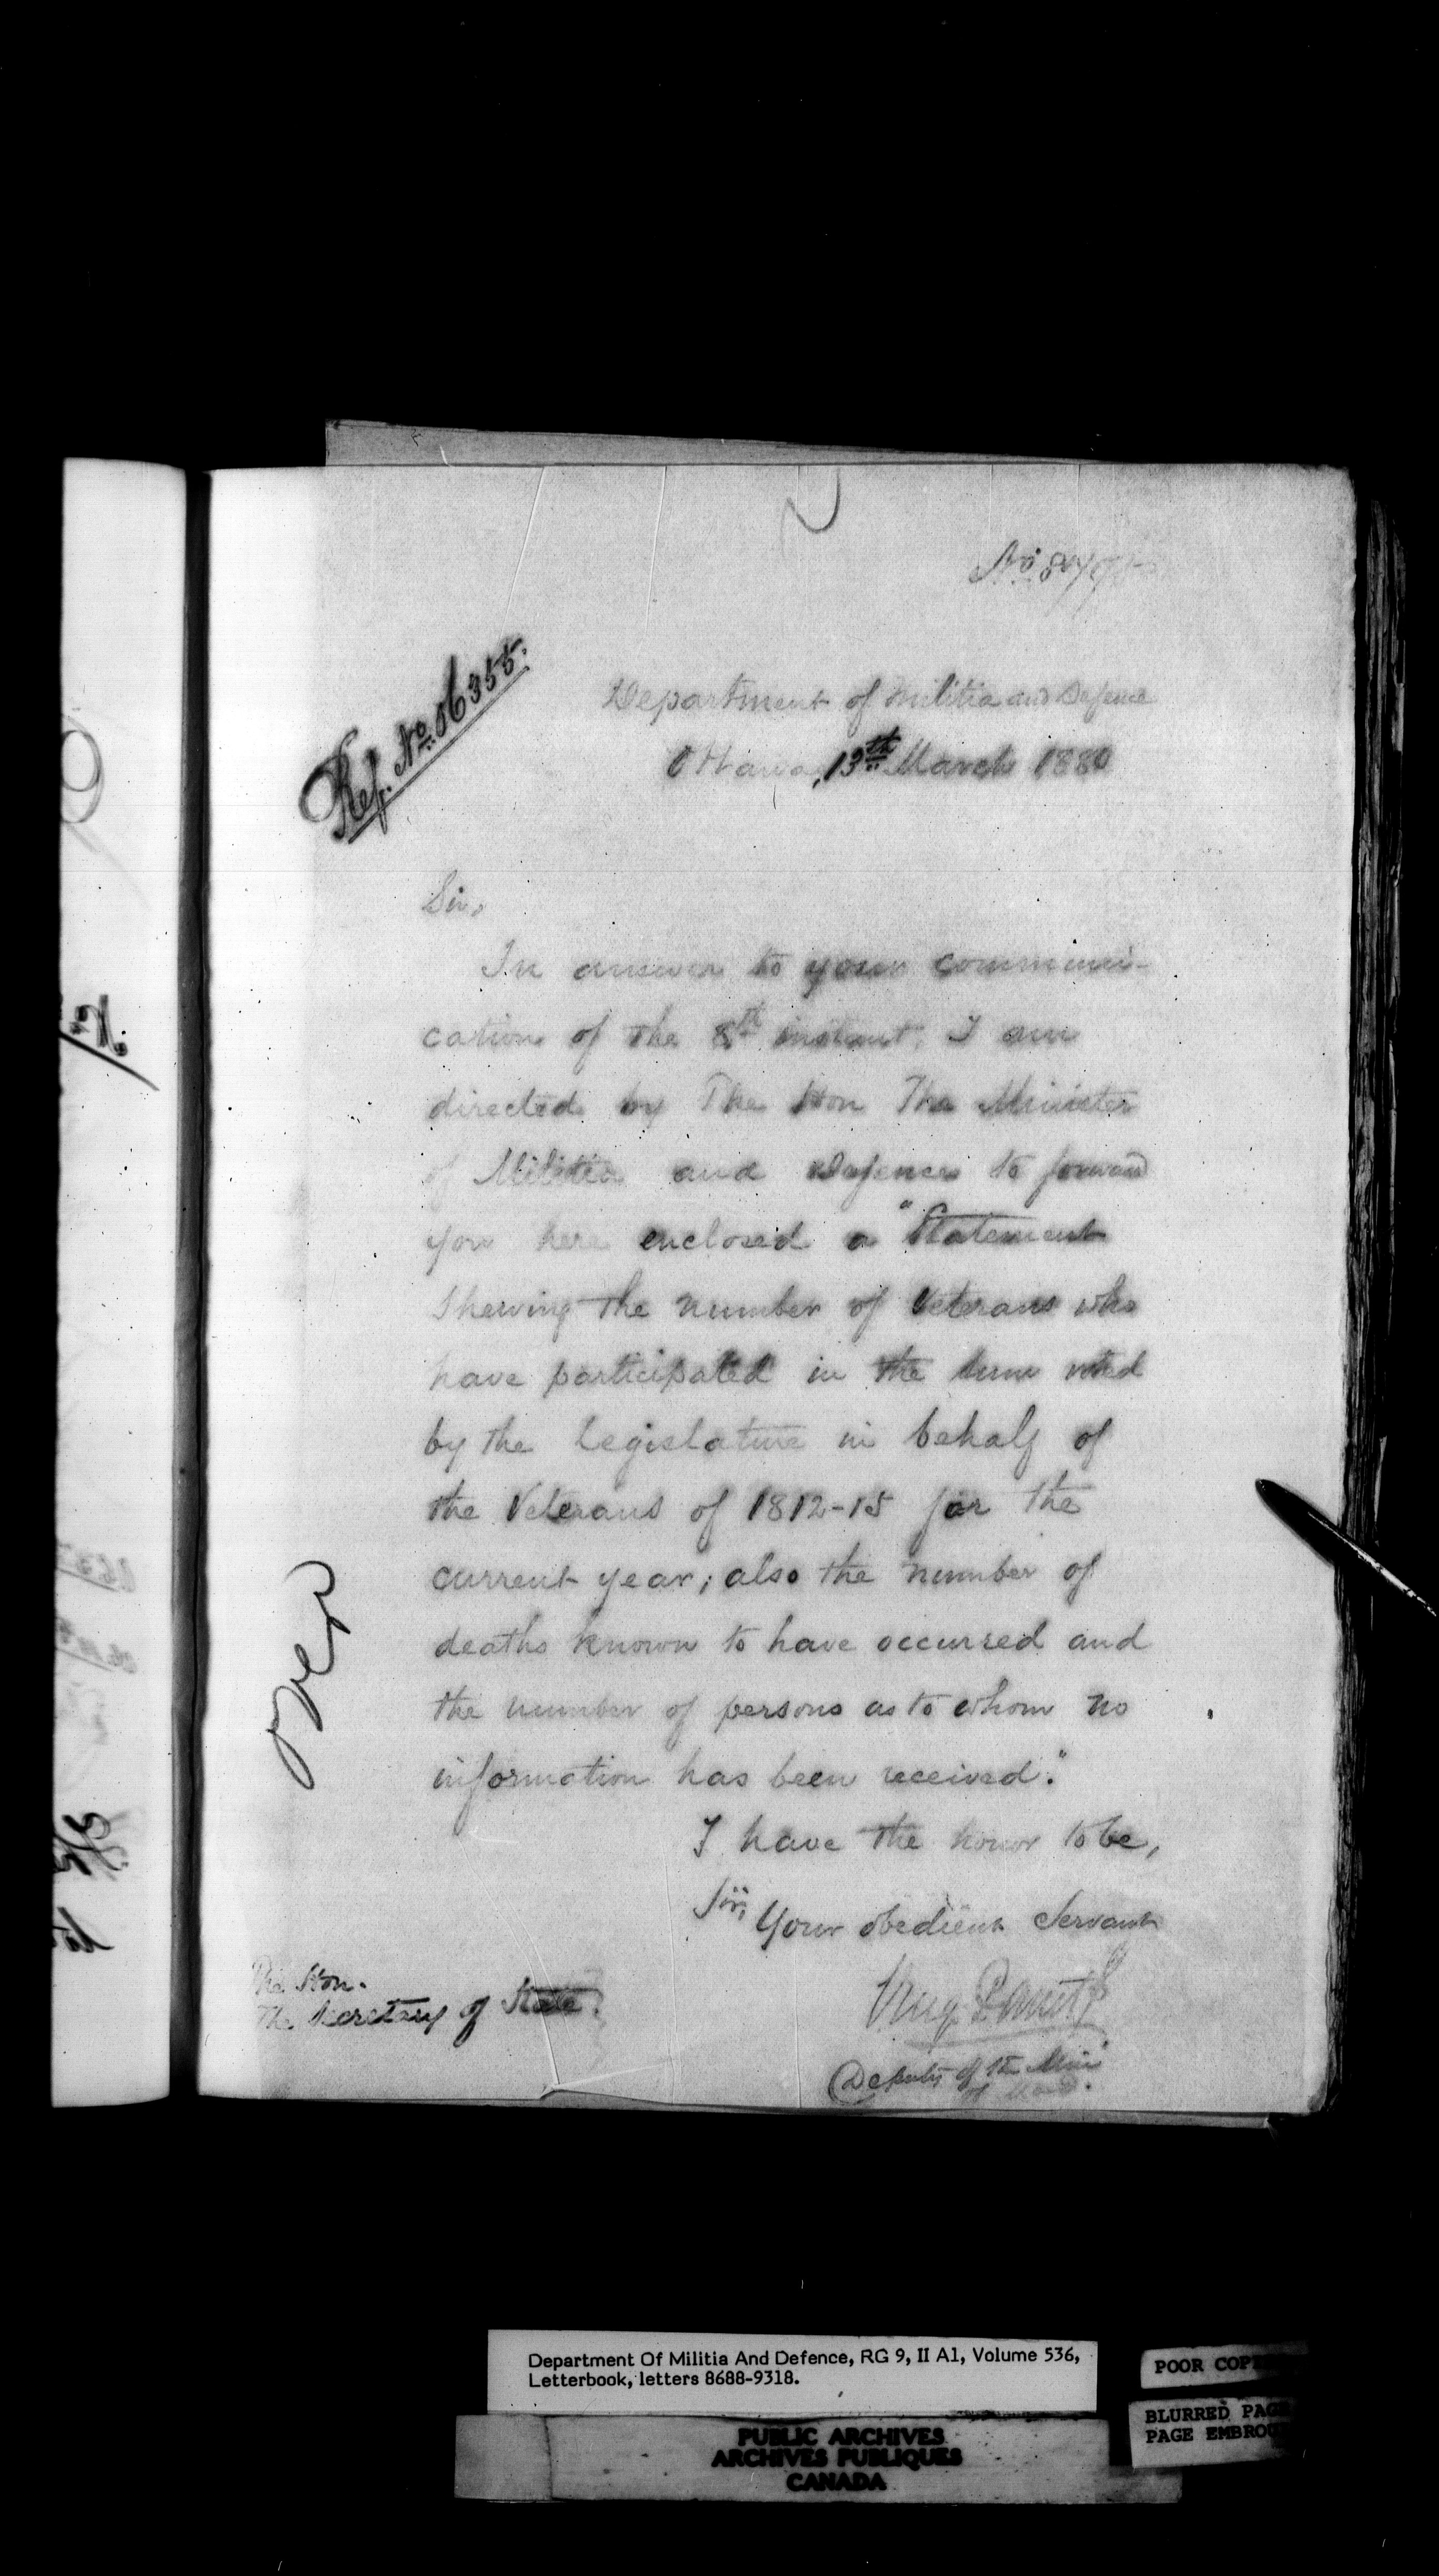 Ref. No. 06355.
Department of Militia and Defence
Ottawa, 13th March 1880
Sir,
In answer to your communi-
cation of the 8th instant, I am
directed by The Hon The Minister
of Militia and Defence to forward
you here enclosed a "Statement
Shewing the number of Veterans who
have participated in the sum voted
by the Legislature in behalf of
the Veterans of 1812-15 for the
current year; also the number of
deaths known to have occurred and
the number of persons as to whom no
information has been received."
I have the honor to be,
Sir,
Your obedient Servant
Deputy of the Min
of
The Hon.
The Secretary of State.
over
Department Of Militia And Defence, RG 9, II A1, Volume 536,
Letterbook, letters 8688-9318.
POOR COP
BLURRED PAG
PAGE EMBROU
PUBLIC ARCHIVES
ARCHIVES PUBLIQUES
CANADA